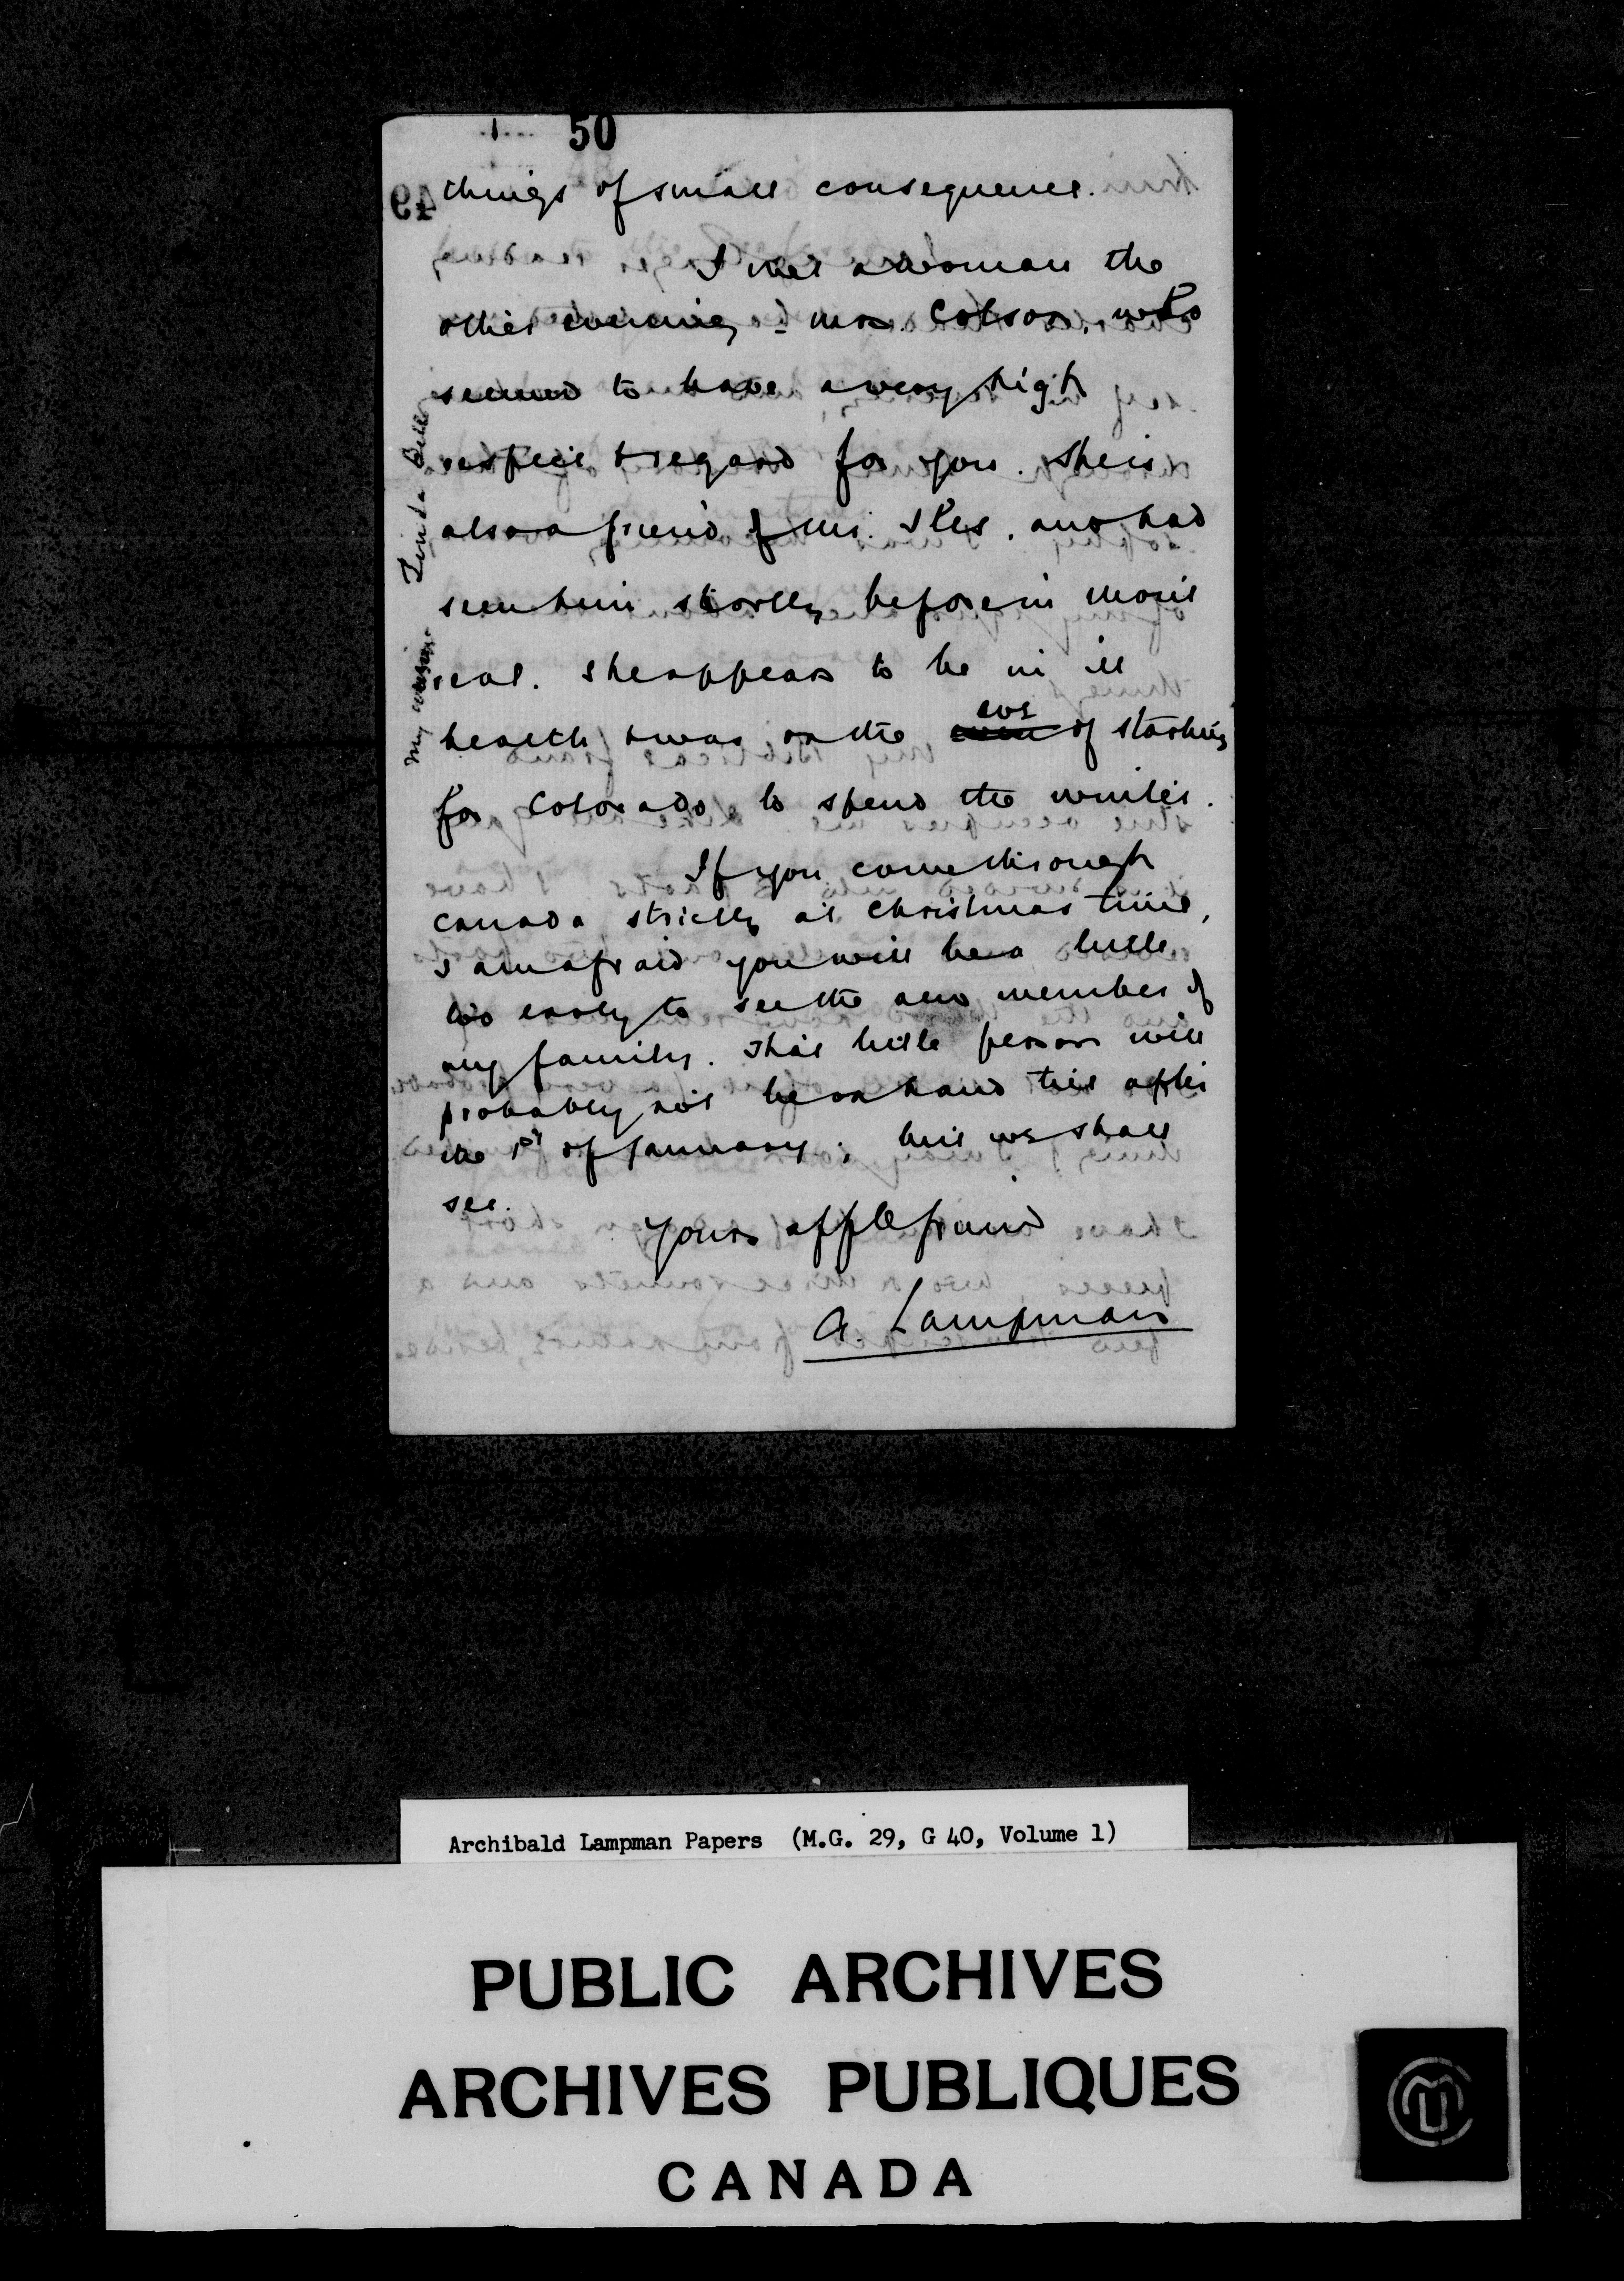 50
49
things of small consequence.
I met a woman the
other evening - Mrs. Colson, who
seemed to have a very high
respect & regard for you. She is
also a friend of Mr. Iles, and had
seen him shortly before in Mont
real. She appears to be in ill
health & was on the eve of starting
for Colorado to spend the winter.
If you come through
Canada strictly at Christmas time,
I am afraid you will be a little
too early to see the new member of
my family. That little person will
probably not be on hand till after
the 1st of January; but we shall
see.
Yours affte friend
A. Lampman
My cousin
Archibald Lampman Papers (M.G. 29, G 40, Volume 1)
PUBLIC ARCHIVES
ARCHIVES PUBLIQUES
CANADA